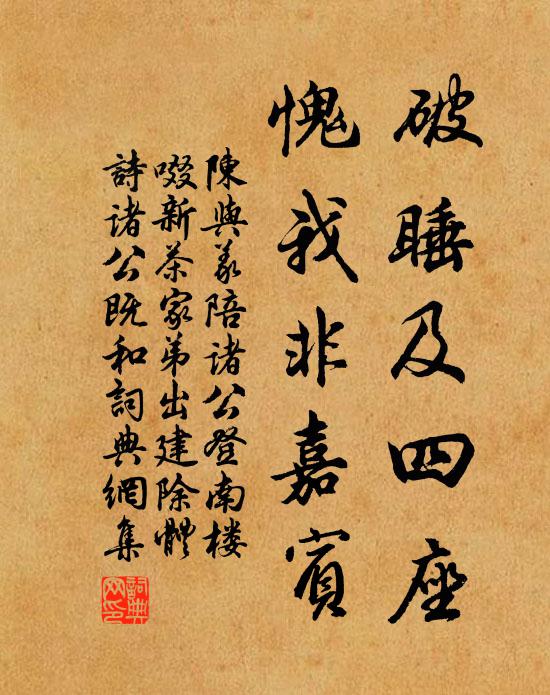 破睡及四座
愧我非嘉賓
陳與義陪诸公登南楼
啜新茶家弟出建除體
詩诸公既和詞典網集
詞典網印